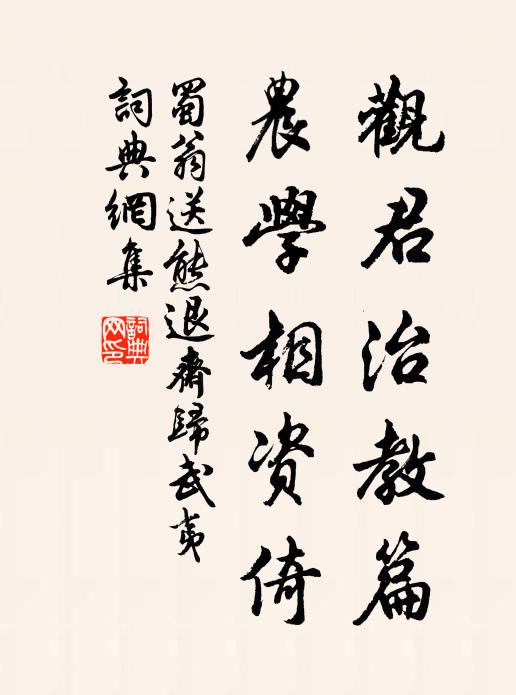 觀君治教篇
農學相资倚
蜀翁送熊退齋歸武夷
詞典網集
詞典网印